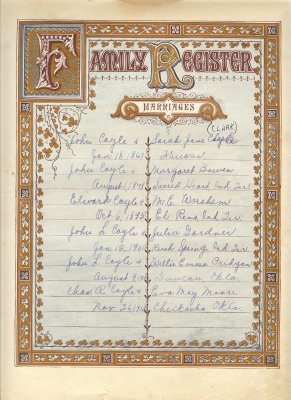 FAMILY REGISTER
MARRIAGES
(CLARK)
John Cayle & Sarah Jane
Jan 18, 186 Kansas.
John Cayle & Margaret Bowen
August, 1, 189 Sacred Heart Ind. Ter.
Edward Cayle & M. E. Warshum
Oct. 6, 1895 El Reno, Ind. Ter.
John L. Cayle & Julia Gardner
Jan 16, 190 Rush Spring, Ind. Ter.
John L Cayle & Willie Emma Pridgen
August 9, 19 Duncan, Okla.
Chas. R. Cayle & Eva May Moore
Nov 26, 19 Chickasha Okla.